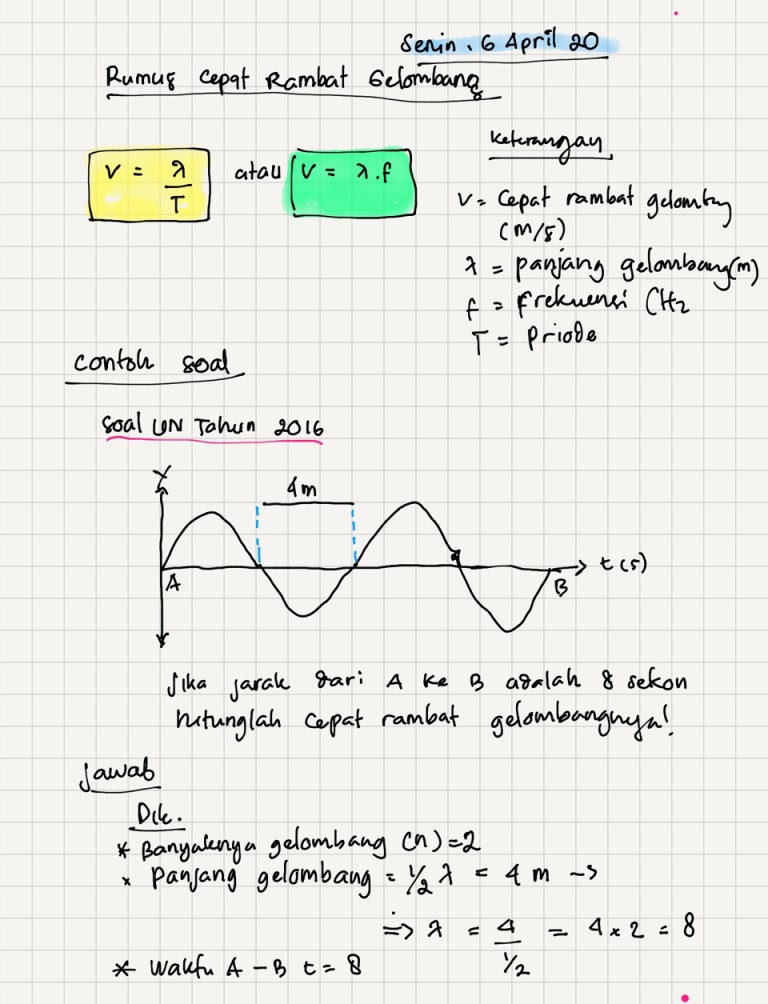 Senin, 6 April 20
Rumus Cepat Rambat Gelombang
V = λ/T atau V = λ.f
Keterangan
V = Cepat rambat gelombang
(m/s)
λ = panjang gelombang (m)
f = frekuensi (Hz
T = Priode
Contoh soal
Soal UN Tahun 2016
Y
4m
A
B
t (s)
Jika jarak dari A ke B adalah 8 sekon
hitunglah cepat rambat gelombangnya!
Jawab
Dik.
* Banyaknya gelombang (n) = 2
* Panjang gelombang = 1/2 λ = 4 m ->
=> λ = 4 / 1/2 = 4 x 2 = 8
* Waktu A - B t = 8